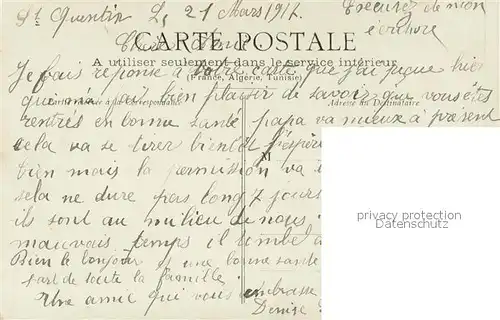 St Quentin Le 21 Mars 1912
Excusez de mon
écriture
CARTE POSTALE
A utiliser seulement dans le service intérieur
(France, Algérie, Tunisie)
Je fais réponse à votre carte que j'ai hier
que m'a fait bien plaisir de savoir que vous êtes
Correspondance
Adresse du Destinataire
rentrés en bonne santé papa va mieux à présent
cela va se tirer bientôt
M
bien mais la permission va
sela ne dure pas long 7 jours
ils sont au milieu de nous
mauvais temps il tombe
Bien le bonjour et une bonne santé
part de toute la famille
Une amie qui vous embrasse
Denise
privacy protection
Datenschutz